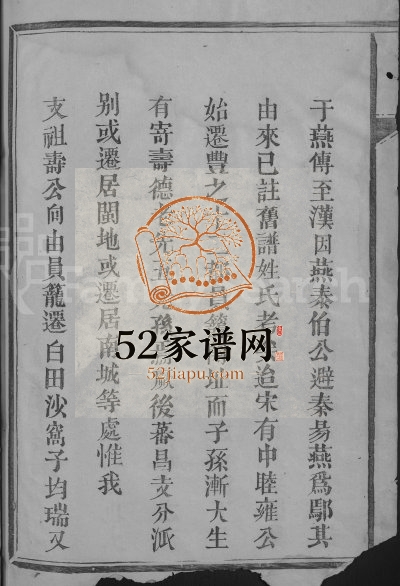 于燕傳至漢因燕秦伯公避秦易燕爲鄢其
由來已註舊譜姓氏考 迨宋有中睦雍公
始遷豐之 而子孫漸大生
有寄壽德 後蕃昌支分派
别或遷居閩地或遷居南城等處惟我
支祖壽公何由員籠遷白田沙窩子均瑞又
52家谱网
52jiapu.com